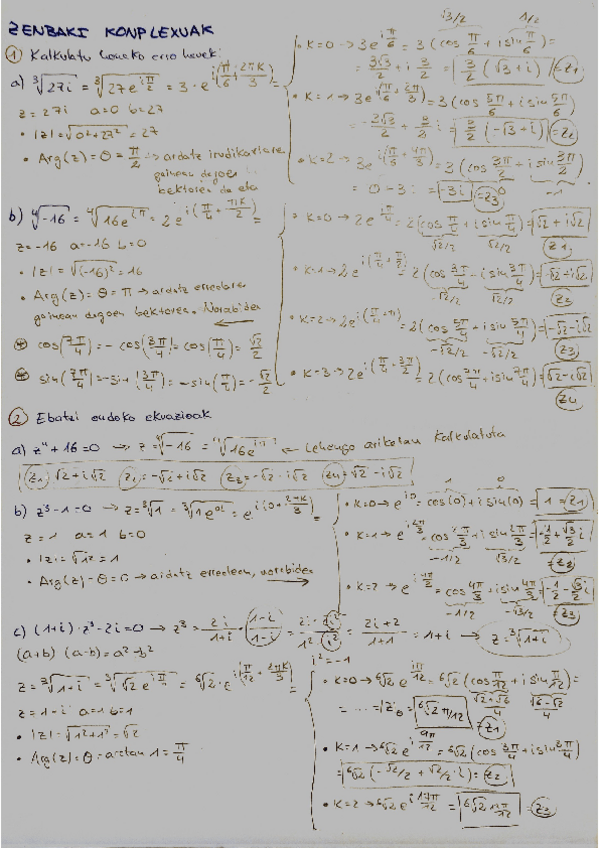 ZENBAKI KONPLEXUAK
① Kalkulatu honeko erro hauek:
a) ∛27i = ∛27e^{iπ/2} = 3 · e^{i(π/6 + 2πk/3)} =
z = 27i a=0 b=27
• |z| = √0²+27² = 27
• Arg(z) = θ = π/2 → ardatz irudikariaren
gainean dagoen
bektorea da eta
• K=0 → 3e^{iπ/6} = 3 (cos π/6 + i sin π/6) =
√3/2 1/2
= 3√3/2 + i 3/2 = 3/2 (√3 + i) = z₁
• K=1 → 3e^{i(π/6 + 2π/3)} = 3 (cos 5π/6 + i sin 5π/6)
= -3√3/2 + 3/2 i = 3/2 (-√3 + i) = z₂
• K=2 → 3e^{i(π/6 + 4π/3)} = 3 (cos 3π/2 + i sin 3π/2)
0 -1
= 0 - 3i = -3i = z₃
b) ∜-16 = ∜16e^{iπ} = 2e^{i(π/4 + πk/2)} =
z = -16 a=-16 b=0
• |z| = √(-16)² = 16
• Arg(z) = θ = π → ardatz errealaren
gainean dagoen bektorea. Norabidea ←
cos(7π/4) = -cos(3π/4) = cos(π/4) = √2/2
sin(7π/4) = -sin(3π/4) = -sin(π/4) = -√2/2
• K=0 → 2e^{iπ/4} = 2(cos π/4 + i sin π/4) = √2 + i√2
√2/2 √2/2 z₁
• K=1 → 2e^{i(π/4 + π/2)} = 2(cos 3π/4 - i sin 3π/4) = -√2 + i√2
-√2/2 √2/2 z₂
• K=2 → 2e^{i(π/4 + π)} = 2(cos 5π/4 + i sin 5π/4) = -√2 - i√2
-√2/2 -√2/2 z₃
• K=3 → 2e^{i(π/4 + 3π/2)} = 2(cos 7π/4 + i sin 7π/4) = √2 - i√2
z₄
② Ebatzi ondoko ekuazioak
a) z⁴ + 16 = 0 → z = ∜-16 = ∜16e^{iπ} = Lehengo ariketan kalkulatuta
z₁ = √2 + i√2 z₂ = -√2 + i√2 z₃ = -√2 - i√2 z₄ = √2 - i√2
b) z³ - 1 = 0 → z = ∛1 = ∛1e^{0i} = e^{i(0 + 2πk/3)} =
z = 1 a=1 b=0
• |z| = √1² = 1
• Arg(z) = θ = 0 → ardatz errealean, norabidea →
1 0
• K=0 → e^{i0} = cos(0) + i sin(0) = 1 = z₁
• K=1 → e^{i2π/3} = cos 2π/3 + i sin 2π/3 = -1/2 + √3/2 i
-1/2 √3/2 z₂
• K=2 → e^{i4π/3} = cos 4π/3 + i sin 4π/3 = -1/2 - √3/2 i
-1/2 -√3/2 z₃
c) (1+i) · z³ - 2i = 0 → z³ = 2i/1+i · (1-i/1-i) = 2i - 2i²/1² - i² = 2i + 2/1+1 = 1+i → z = ∛1+i
(a+b) (a-b) = a² - b² i² = -1
z = ∛1+i = ∛√2 e^{iπ/4} = ⁶√2 · e^{i(π/12 + 2πk/3)} =
z = 1+i a=1 b=1
• |z| = √1²+1² = √2
• Arg(z) = θ = arctan 1 = π/4
• K=0 → ⁶√2 e^{iπ/12} = ⁶√2 (cos π/12 + i sin π/12) =
√2+√6/4 √6-√2/4
= ··· = z₀ = ⁶√2 π/12 = z₁
• K=1 → ⁶√2 e^{i9π/12} = ⁶√2 (cos 3π/4 + i sin 3π/4)
= ⁶√2 (-√2/2 + √2/2 i) = z₂
• K=2 → ⁶√2 e^{i17π/12} = ⁶√2 17π/12 = z₃